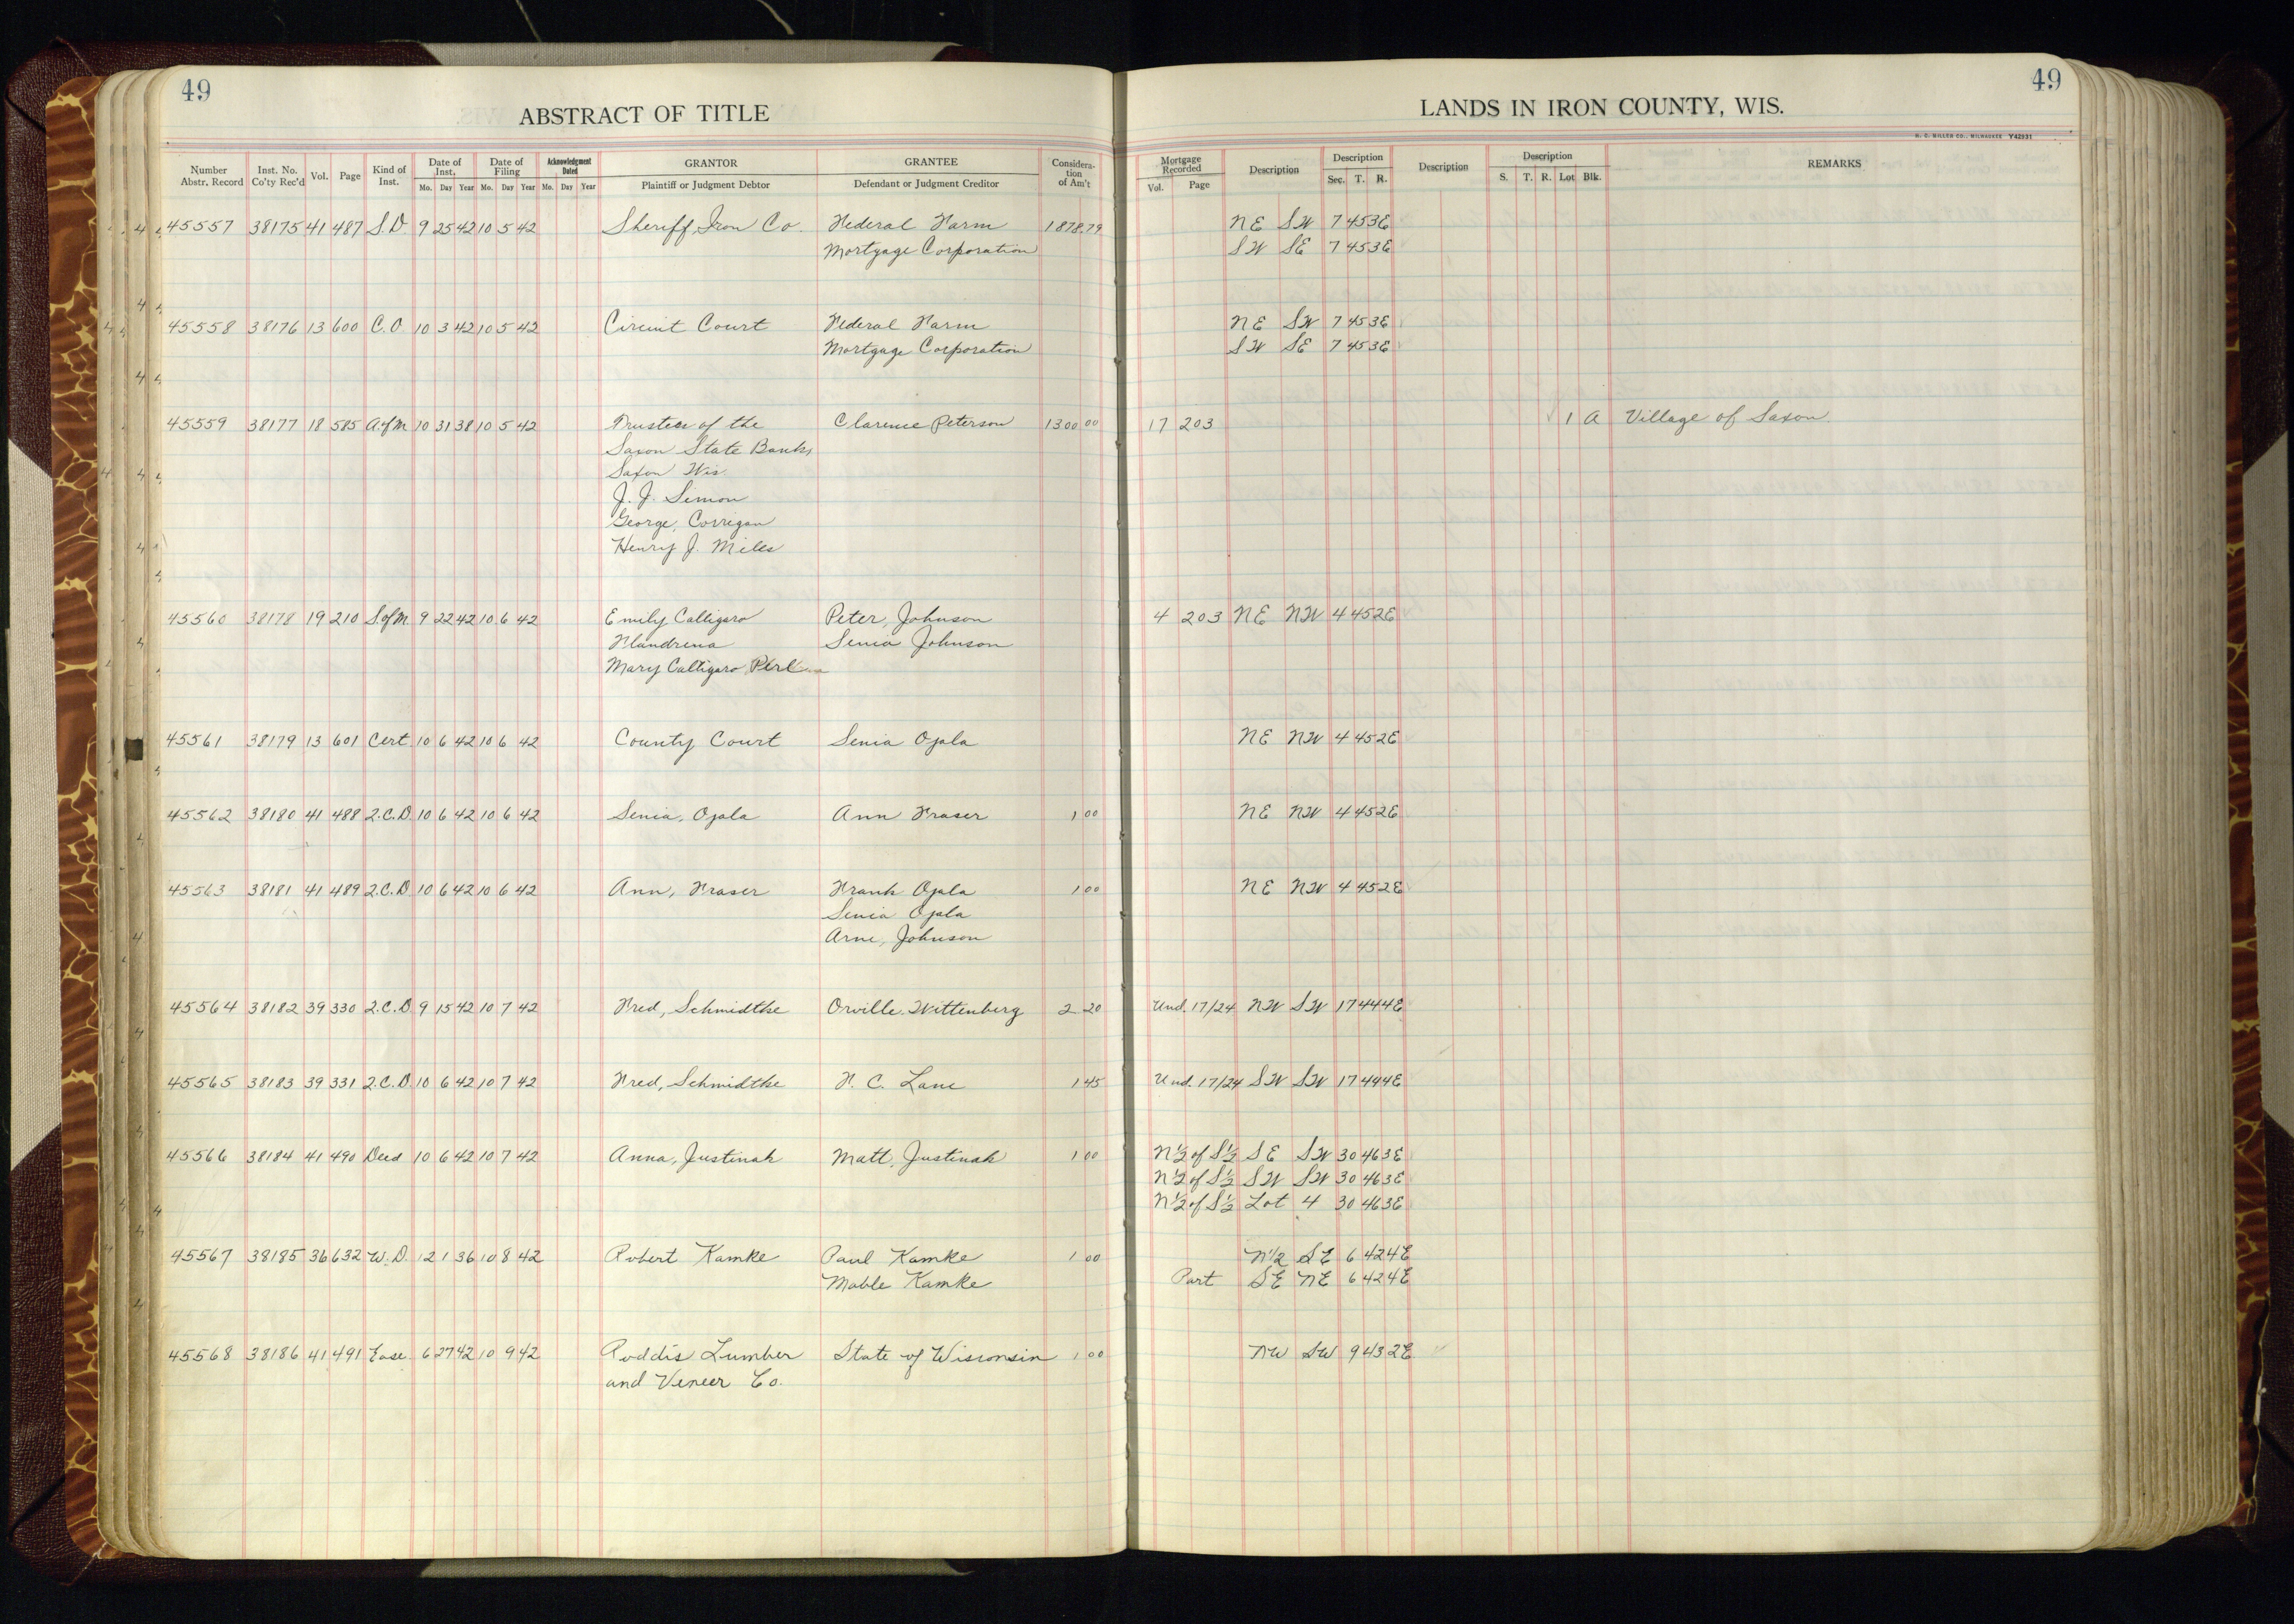 49
ABSTRACT OF TITLE
Number Abstr. Record | Inst. No. Co'ty Rec'd | Vol. | Page | Kind of Inst. | Date of Inst. Mo. Day Year | Date of Filing Mo. Day Year | Acknowledgment Dated Mo. Day Year | GRANTOR Plaintiff or Judgment Debtor | GRANTEE Defendant or Judgment Creditor | Considera-tion of Am't
45557 38175 41 487 S.D. 9 25 42 10 5 42 Sheriff, Iron Co. Federal Farm 1878.79
Mortgage Corporation
45558 38176 13 600 C.O. 10 3 42 10 5 42 Circuit Court Federal Farm
Mortgage Corporation
45559 38177 18 585 A.ofM. 10 31 38 10 5 42 Trustees of the Clarence Peterson 1300 00
Saxon State Bank,
Saxon Wis.
J. J. Simon
George, Corrigan
Henry J. Miles
45560 38178 19 210 S.ofM. 9 22 42 10 6 42 Emily Calligaro Peter, Johnson
Flandrena Senia Johnson
Mary Calligaro
45561 38179 13 601 Cert 10 6 42 10 6 42 County Court Senia Ojala
45562 38180 41 488 2.C.D. 10 6 42 10 6 42 Senia, Ojala Ann Fraser 1 00
45563 38181 41 489 2.C.D. 10 6 42 10 6 42 Ann, Fraser Frank Ojala 1 00
Senia Ojala
Arne, Johnson
45564 38182 39 330 2.C.D. 9 15 42 10 7 42 Fred, Schmidtke Orville, Wittenberg 2 20
45565 38183 39 331 2.C.D. 10 6 42 10 7 42 Fred, Schmidtke F. C. Lane 1 45
45566 38184 41 490 Deed 10 6 42 10 7 42 Anna, Justinak Matt, Justinak 1 00
45567 38185 36 632 W.D. 12 1 36 10 8 42 Robert Kamke Paul Kamke 1 00
Mable Kamke
45568 38186 41 491 Ease. 6 27 42 10 9 42 Roddis Lumber State of Wisconsin 1 00
and Veneer Co.
49
LANDS IN IRON COUNTY, WIS.
H. C. MILLER CO., MILWAUKEE Y42931
Mortgage Recorded Vol. Page | Description | Description Sec. T. R. | Description | Description S. T. R. Lot Blk. | REMARKS
NE SW 7 45 3E
SW SE 7 45 3E
NE SW 7 45 3E
SW SE 7 45 3E
17 203 1 A Village of Saxon
4 203 NE NW 4 45 2E
NE NW 4 45 2E
NE NW 4 45 2E
NE NW 4 45 2E
Und. 17/24 NW SW 17 44 4E
Und. 17/24 SW SW 17 44 4E
N½ of S½ SE SW 30 46 3E
N½ of S½ SW SW 30 46 3E
N½ of S½ Lot 4 30 46 3E
N1/2 SE 6 42 4E
Part SE NE 6 42 4E
NW SW 9 43 2E